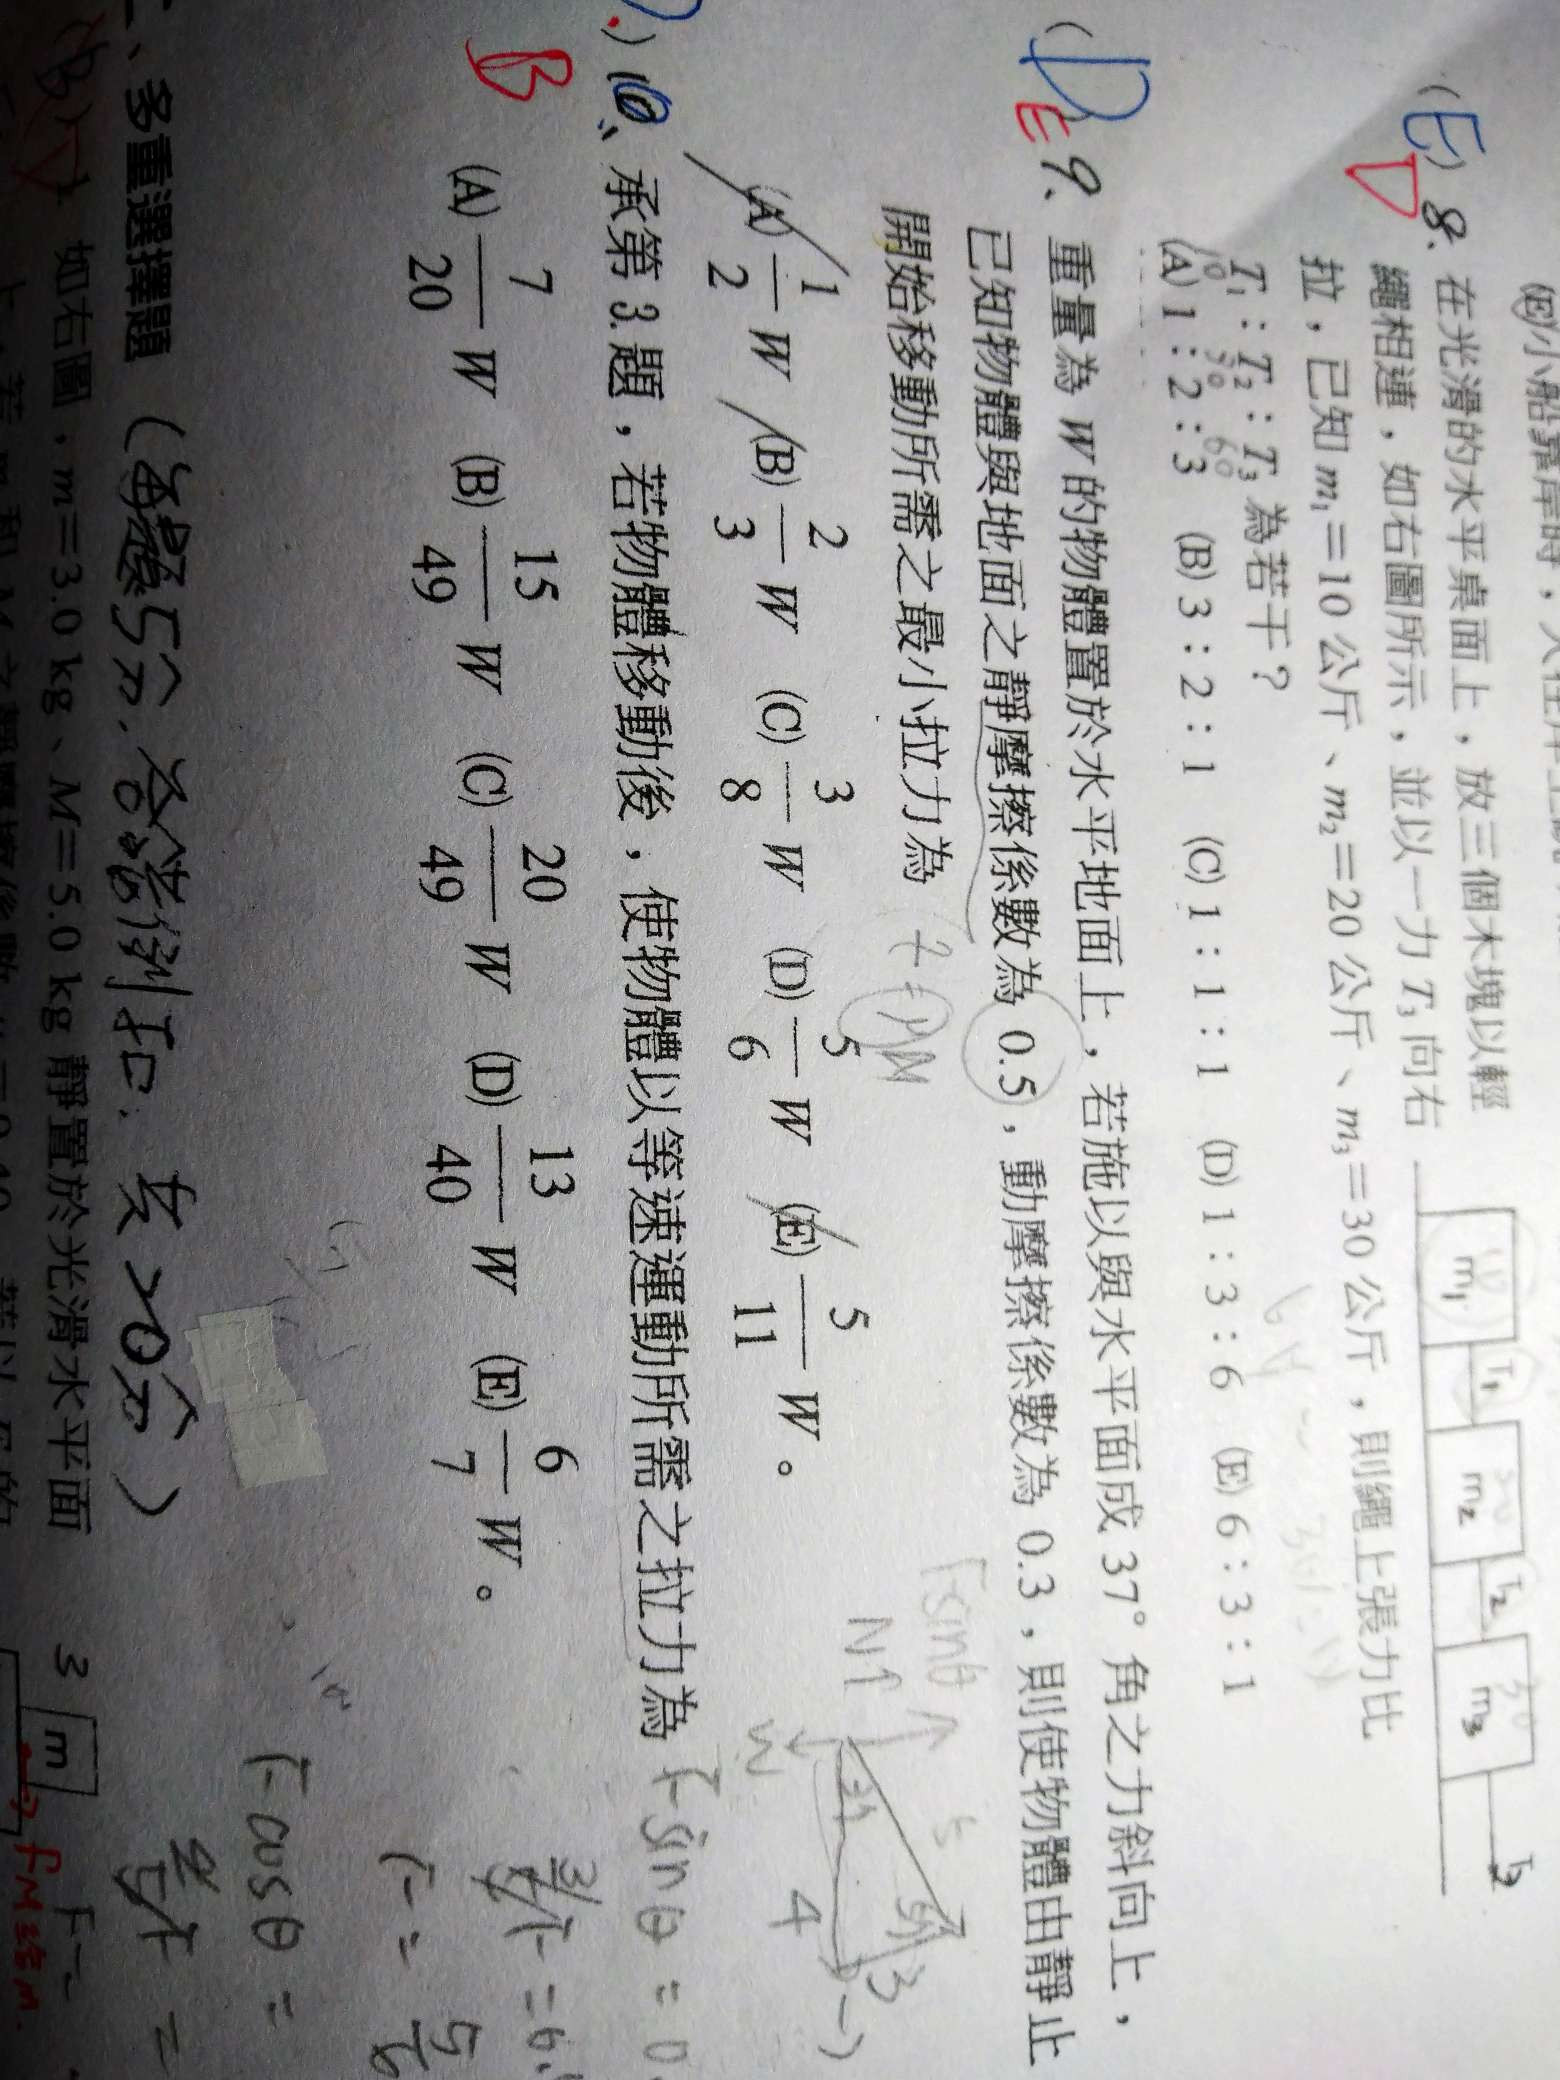 (E)小船靠岸時，人在岸上
(E) D 8、在光滑的水平桌面上，放三個木塊以輕
繩相連，如右圖所示，並以一力 T₃ 向右
拉，已知 m₁＝10 公斤、m₂＝20 公斤、m₃＝30 公斤，則繩上張力比
T₁：T₂：T₃ 為若干？
10 30 60
(A) 1：2：3 (B) 3：2：1 (C) 1：1：1 (D) 1：3：6 (E) 6：3：1
m₁ T₁ m₂ T₂ m₃ T₃
10 20 30
(D E 9、重量為 W 的物體置於水平地面上，若施以與水平面成 37° 角之力斜向上，
已知物體與地面之靜摩擦係數為 0.5，動摩擦係數為 0.3，則使物體由靜止
開始移動所需之最小拉力為
(A) 1/2 W (B) 2/3 W (C) 3/8 W (D) 5/6 W (E) 5/11 W。
Fsinθ
N↑
W
37
5
4
3
) 10、承第 3.題，若物體移動後，使物體以等速運動所需之拉力為
B
(A) 7/20 W (B) 15/49 W (C) 20/49 W (D) 13/40 W (E) 6/7 W。
Fsinθ = 0.
F = 5/6
Fcosθ =
二、多重選擇題（每題5分，各答倒扣：友>0分）
(B) 如右圖，m＝3.0 kg、M＝5.0 kg 靜置於光滑水平面
3 m F